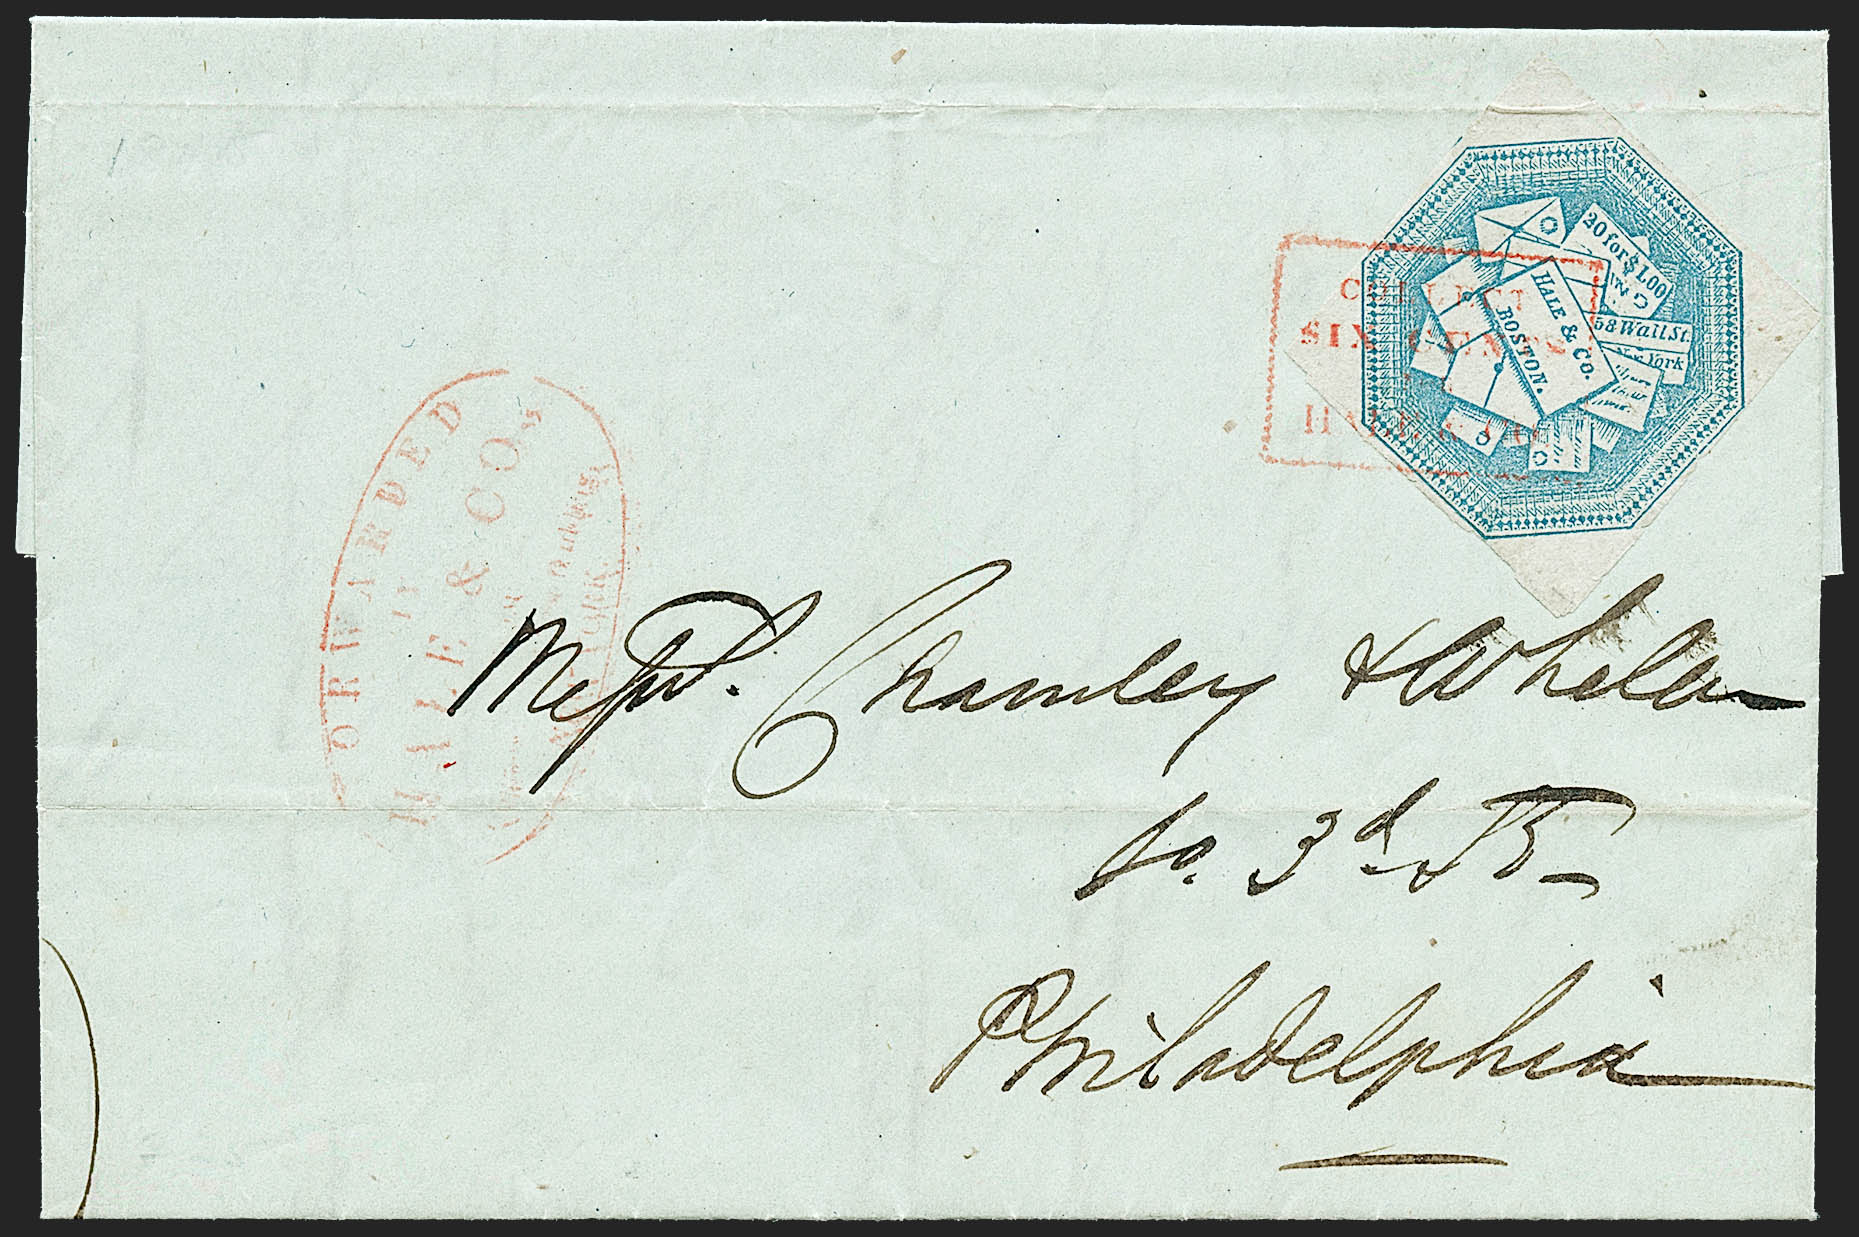 20 for $1.00
HALE & CO.
BOSTON.
58 Wall St.
New York
COLLECT
SIX CENTS
FOR
HALE & CO.
FORWARDED
BY
HALE & CO.
Messrs. Chamley & Whelen
So. 3d St
Philadelphia